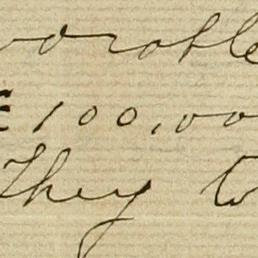 vorable
£ 100,00
They w